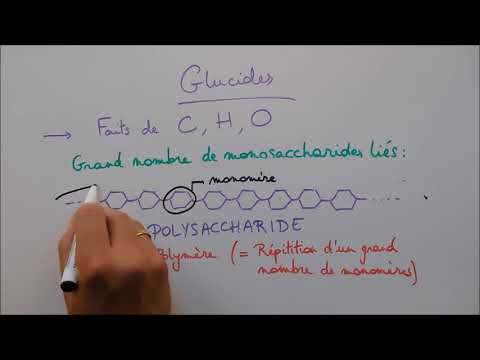 Glucides
→ Faits de C, H, O
Grand nombre de monosaccharides liés :
monomère
POLYSACCHARIDE
Polymère (= Répitition d'un grand
nombre de monomères)